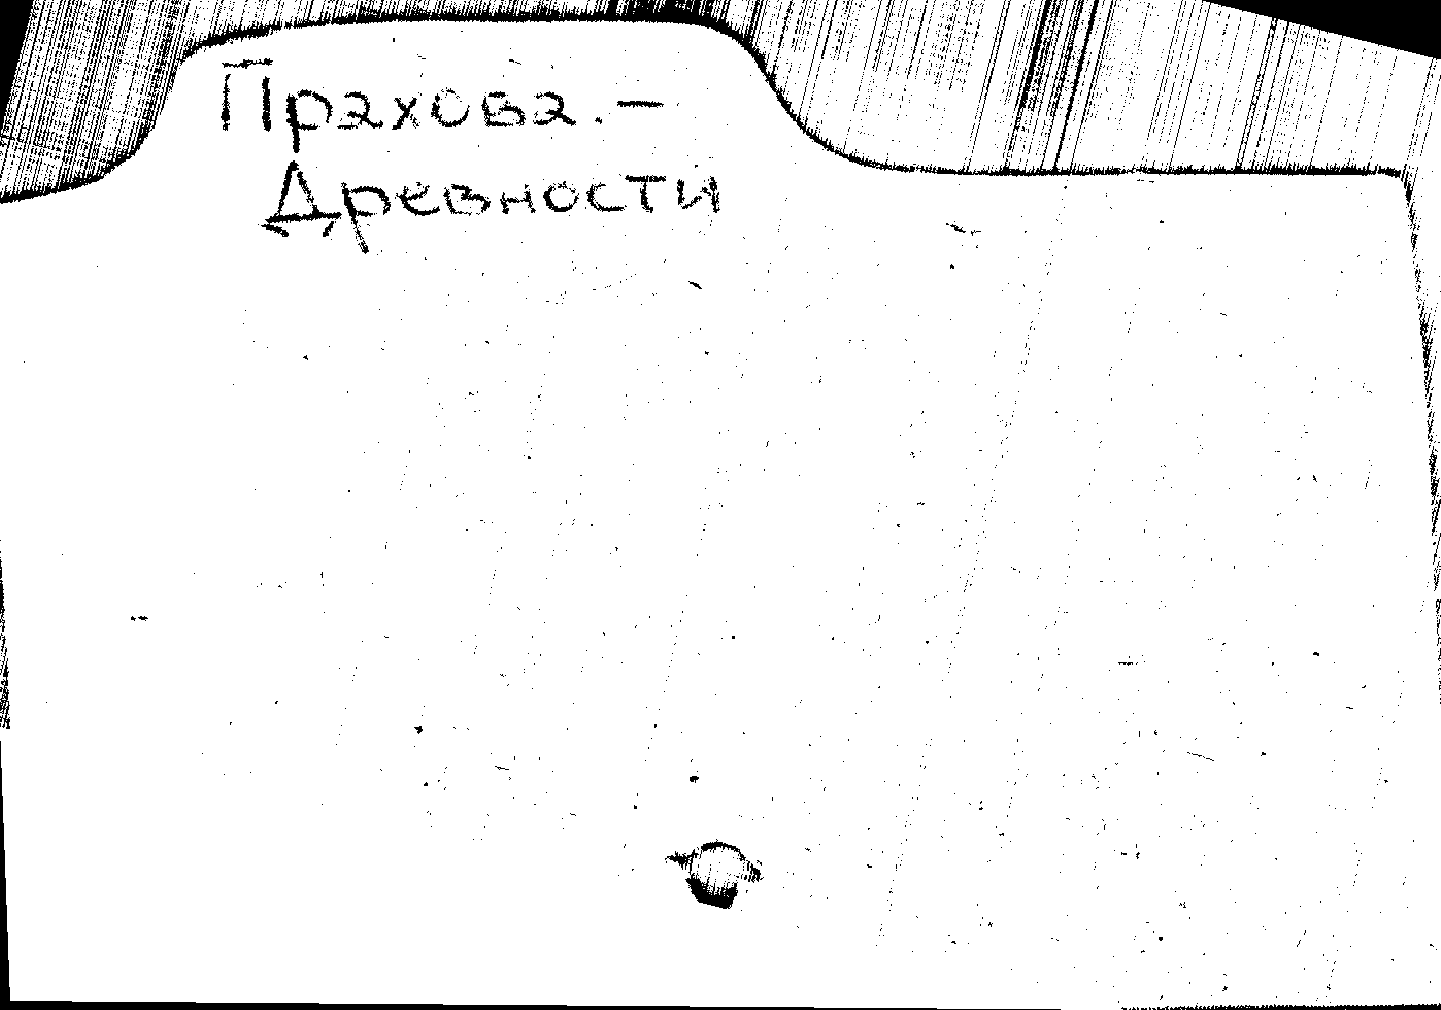 Прахова. —
Древности